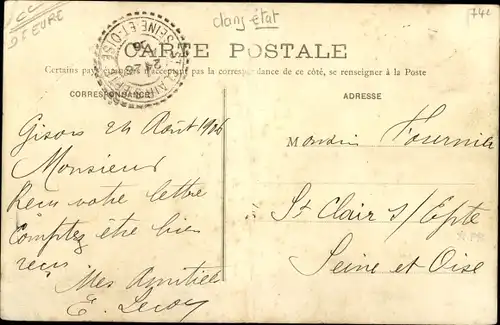 dans état
74L
D S EURE
CARTE POSTALE
Certains pays étrangers n'acceptent pas la correspondance de ce côté, se renseigner à la Poste
CORRESPONDANCE
ADRESSE
SEINE-ET-OISE
24 -8
06
Gisors 24 Août 1906
Monsieur
Reçu votre lettre
Comptez être bien
reçu
Mes Amitiés
E. Leroy
Monsieur Fournier
St Clair s/ Epte
Seine et Oise